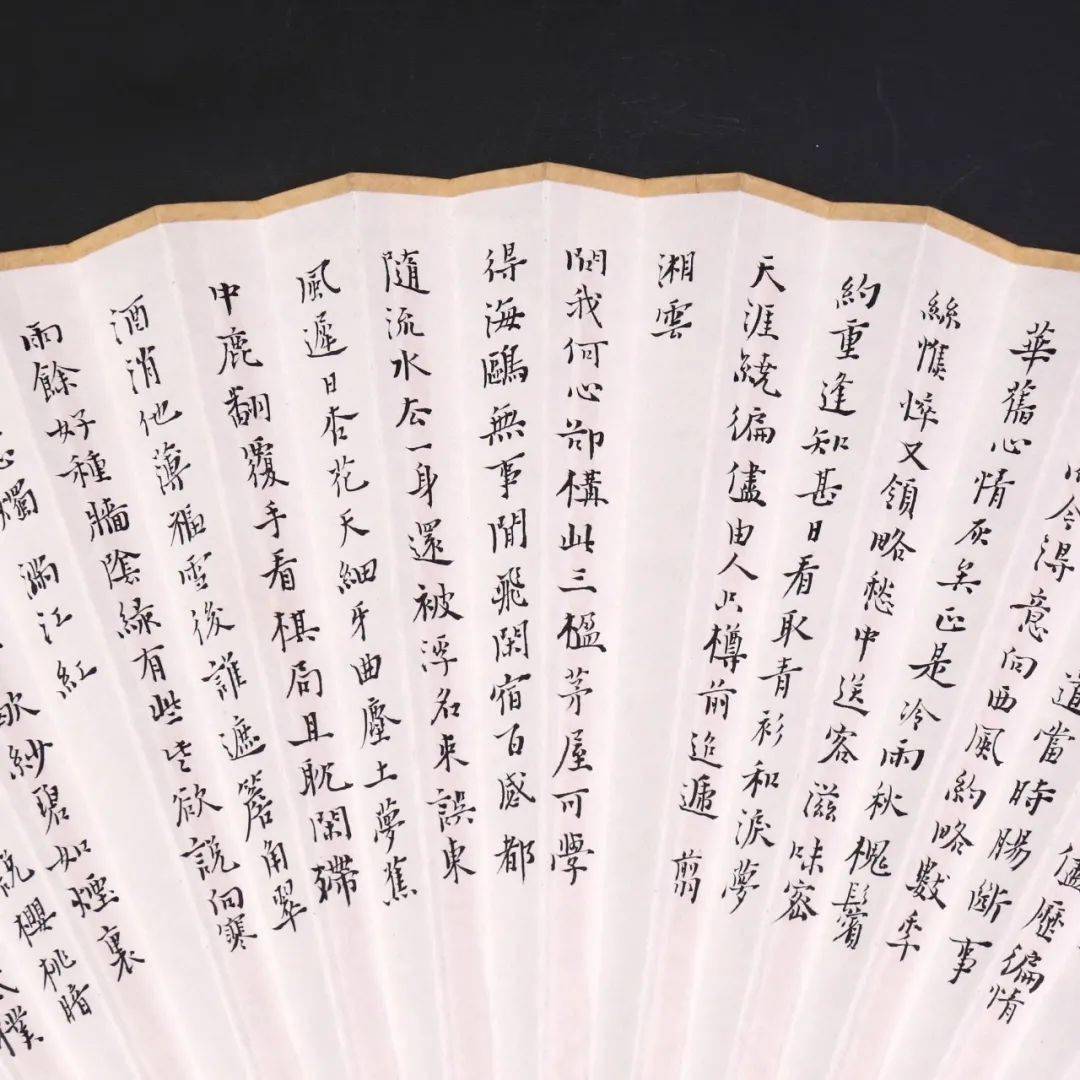 道當時腸斷事
今得意向西風約略數年
華舊心情灰矣正是冷雨秋槐鬢
絲憔悴又領略愁中送客滋味密
約重逢知甚日看取青衫和淚夢
天涯繞徧儘由人只樽前迢遞 翦
湘雲
問我何心卻構此三楹茅屋可學
得海鷗無事閒飛閑宿百感都
隨流水去一身還被浮名束誤東
風遲日杏花天細牙曲塵土夢蕉
中鹿翻覆手看棋局且耽閑殢
酒消他薄福雪後誰遮簷角翠
雨餘好種牆陰綠有些些欲說向寒
滿江紅
紗碧如煙裏
說櫻桃暗